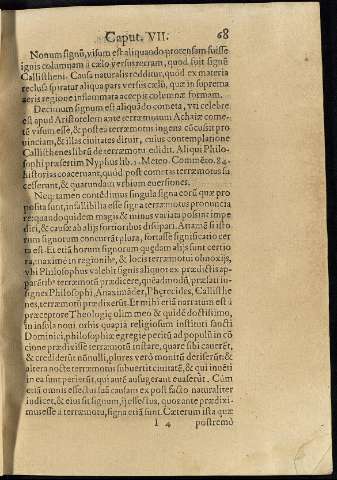 Caput. VII. 68
Nonum signũ, visum est aliquando protensam fuisse
ignis columnam à cælo versus terram, quod fuit signũ
Callistheni. Causa naturalis redditur, quod ex materia
reclusi spiratur aliqua pars versus cælũ, quæ in suprema
aeris regione inflammata accepit columnæ formam.
Decimum signum est aliquãdo cometa, vti celebre
est apud Aristotelem ante terræmotum Achaiæ come-
tẽ visum esse, & postea terræmotus ingens cõcussit pro
uinciam, & illas ciuitates diruit, cuius contemplatione
Callisthenes librũ de terræmotu edidit. Aliqui Philo-
sophi præsertim Nyphus lib. 2. Meteo. Commẽto. 84.
historias coaceruant, quòd post cometas terræmotus su
cesserant, & quarundam vrbium euersiones.
Neq; tamen contẽdimus singula signa eorũ quæ pro
posita sunt, infallibilia esse signa terræmotus pronuncia
re: quando quidem magis & minus variata possint impe
diri, & causæ ab alijs fortioribus dissipari. Attamẽ si isto
rum signorum concurrãt plura, fortasse significatio cer
ta est. Et etiã horum signorum quędam alijs sunt certio
ra, maximè in regionibꝰ, & locis terræmotui obnoxijs,
vbi Philosophus valebit signis aliquot ex prædictis ap-
parẽtibꝰ terræmotũ prædicere, quẽadmodũ, prælati in-
signes Philosophi, Anaximãder, Pherecides, Callisthe
nes, terræmotũ prædixerũt. Et mihi etiã narratum est à
præceptore Theologię olim meo & quidẽ doctissimo,
in insula noui orbis quapiã religiosum instituti sancti
Dominici, philosophiæ egregiè peritũ ad populũ in cõ
cione prædixisse terræmotũ instare, quare sibi cauerẽt,
& crediderũt nõnulli, plures verò monitũ deriserũt; &
altera nocte terræmotus subuertit ciuitatẽ, & qui inuẽti
in ea sunt perierũt, qui antè aufugerant euaserũt. Cùm
etiã omnis effectus suã causam ex post facto naturaliter
iudicet, & eius sit signum, ij effectus, quos ante prædixi-
mus esse à terræmotu, signa etiã sunt. Cæterum ista quæ
I 4 postremò